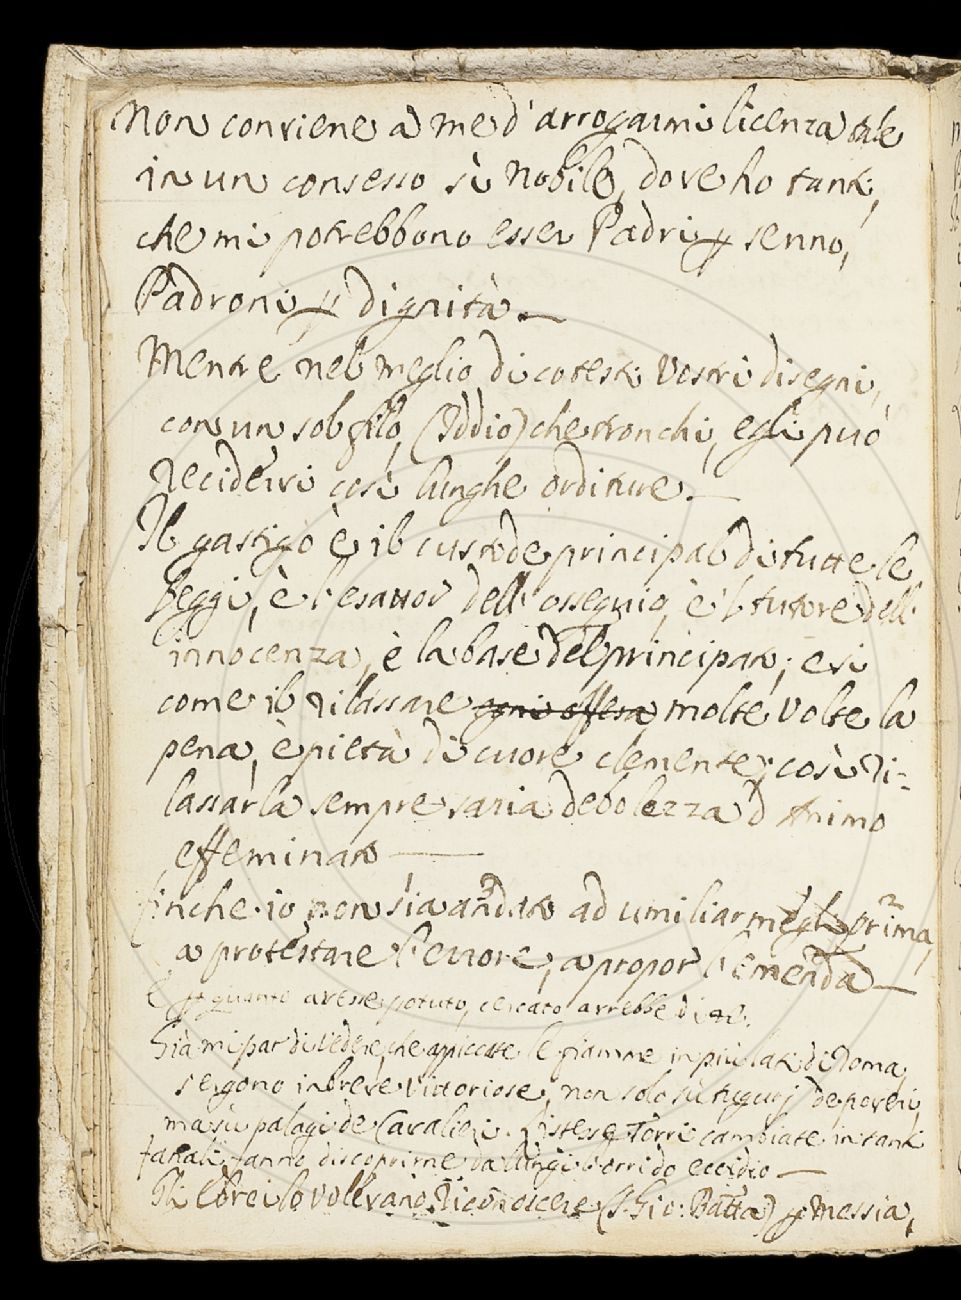 Non conviene a me d'arrogarmi licenza tale
in un consesso sì nobile, dove ho tanti,
che mi potrebbono esser Padri p senno,
Padroni p dignità.—
Mentre nel meglio di cotesti vostri disegni,
con un sol filo, (Iddio) che tronchi, egli può
recidervi così lunghe orditure.—
Il gastigo è il custode principal di tutte le
leggi, è l'esattor dell'ossequio, è 'l tutore dell'
innocenza, è la base del principato; e si
come il rilassare ogni offesa molte volte la
pena, è pietà di cuore clemente; così ri-
lassarla sempre saria debolezza d'Animo
effeminato —
finche io non sia andato ad umiliarmegli prima,
a protestare l'errore, a propor l'emenda—
E p quanto avesse potuto, cercato avrebbe di
Già mi par di vedere, che appiccate le fiamme in più lati di Roma,
sergono in breve vittoriose, non solo sù tugurj de poveri,
ma sù palagi de Cavalieri. L'istesse Torri cambiate in tanti
fanali, fanno discoprirne da lungi l'orrido eccidio—
Gli Ebrei lo volevano riconoscere (S. Gio: Batta) p Messia,